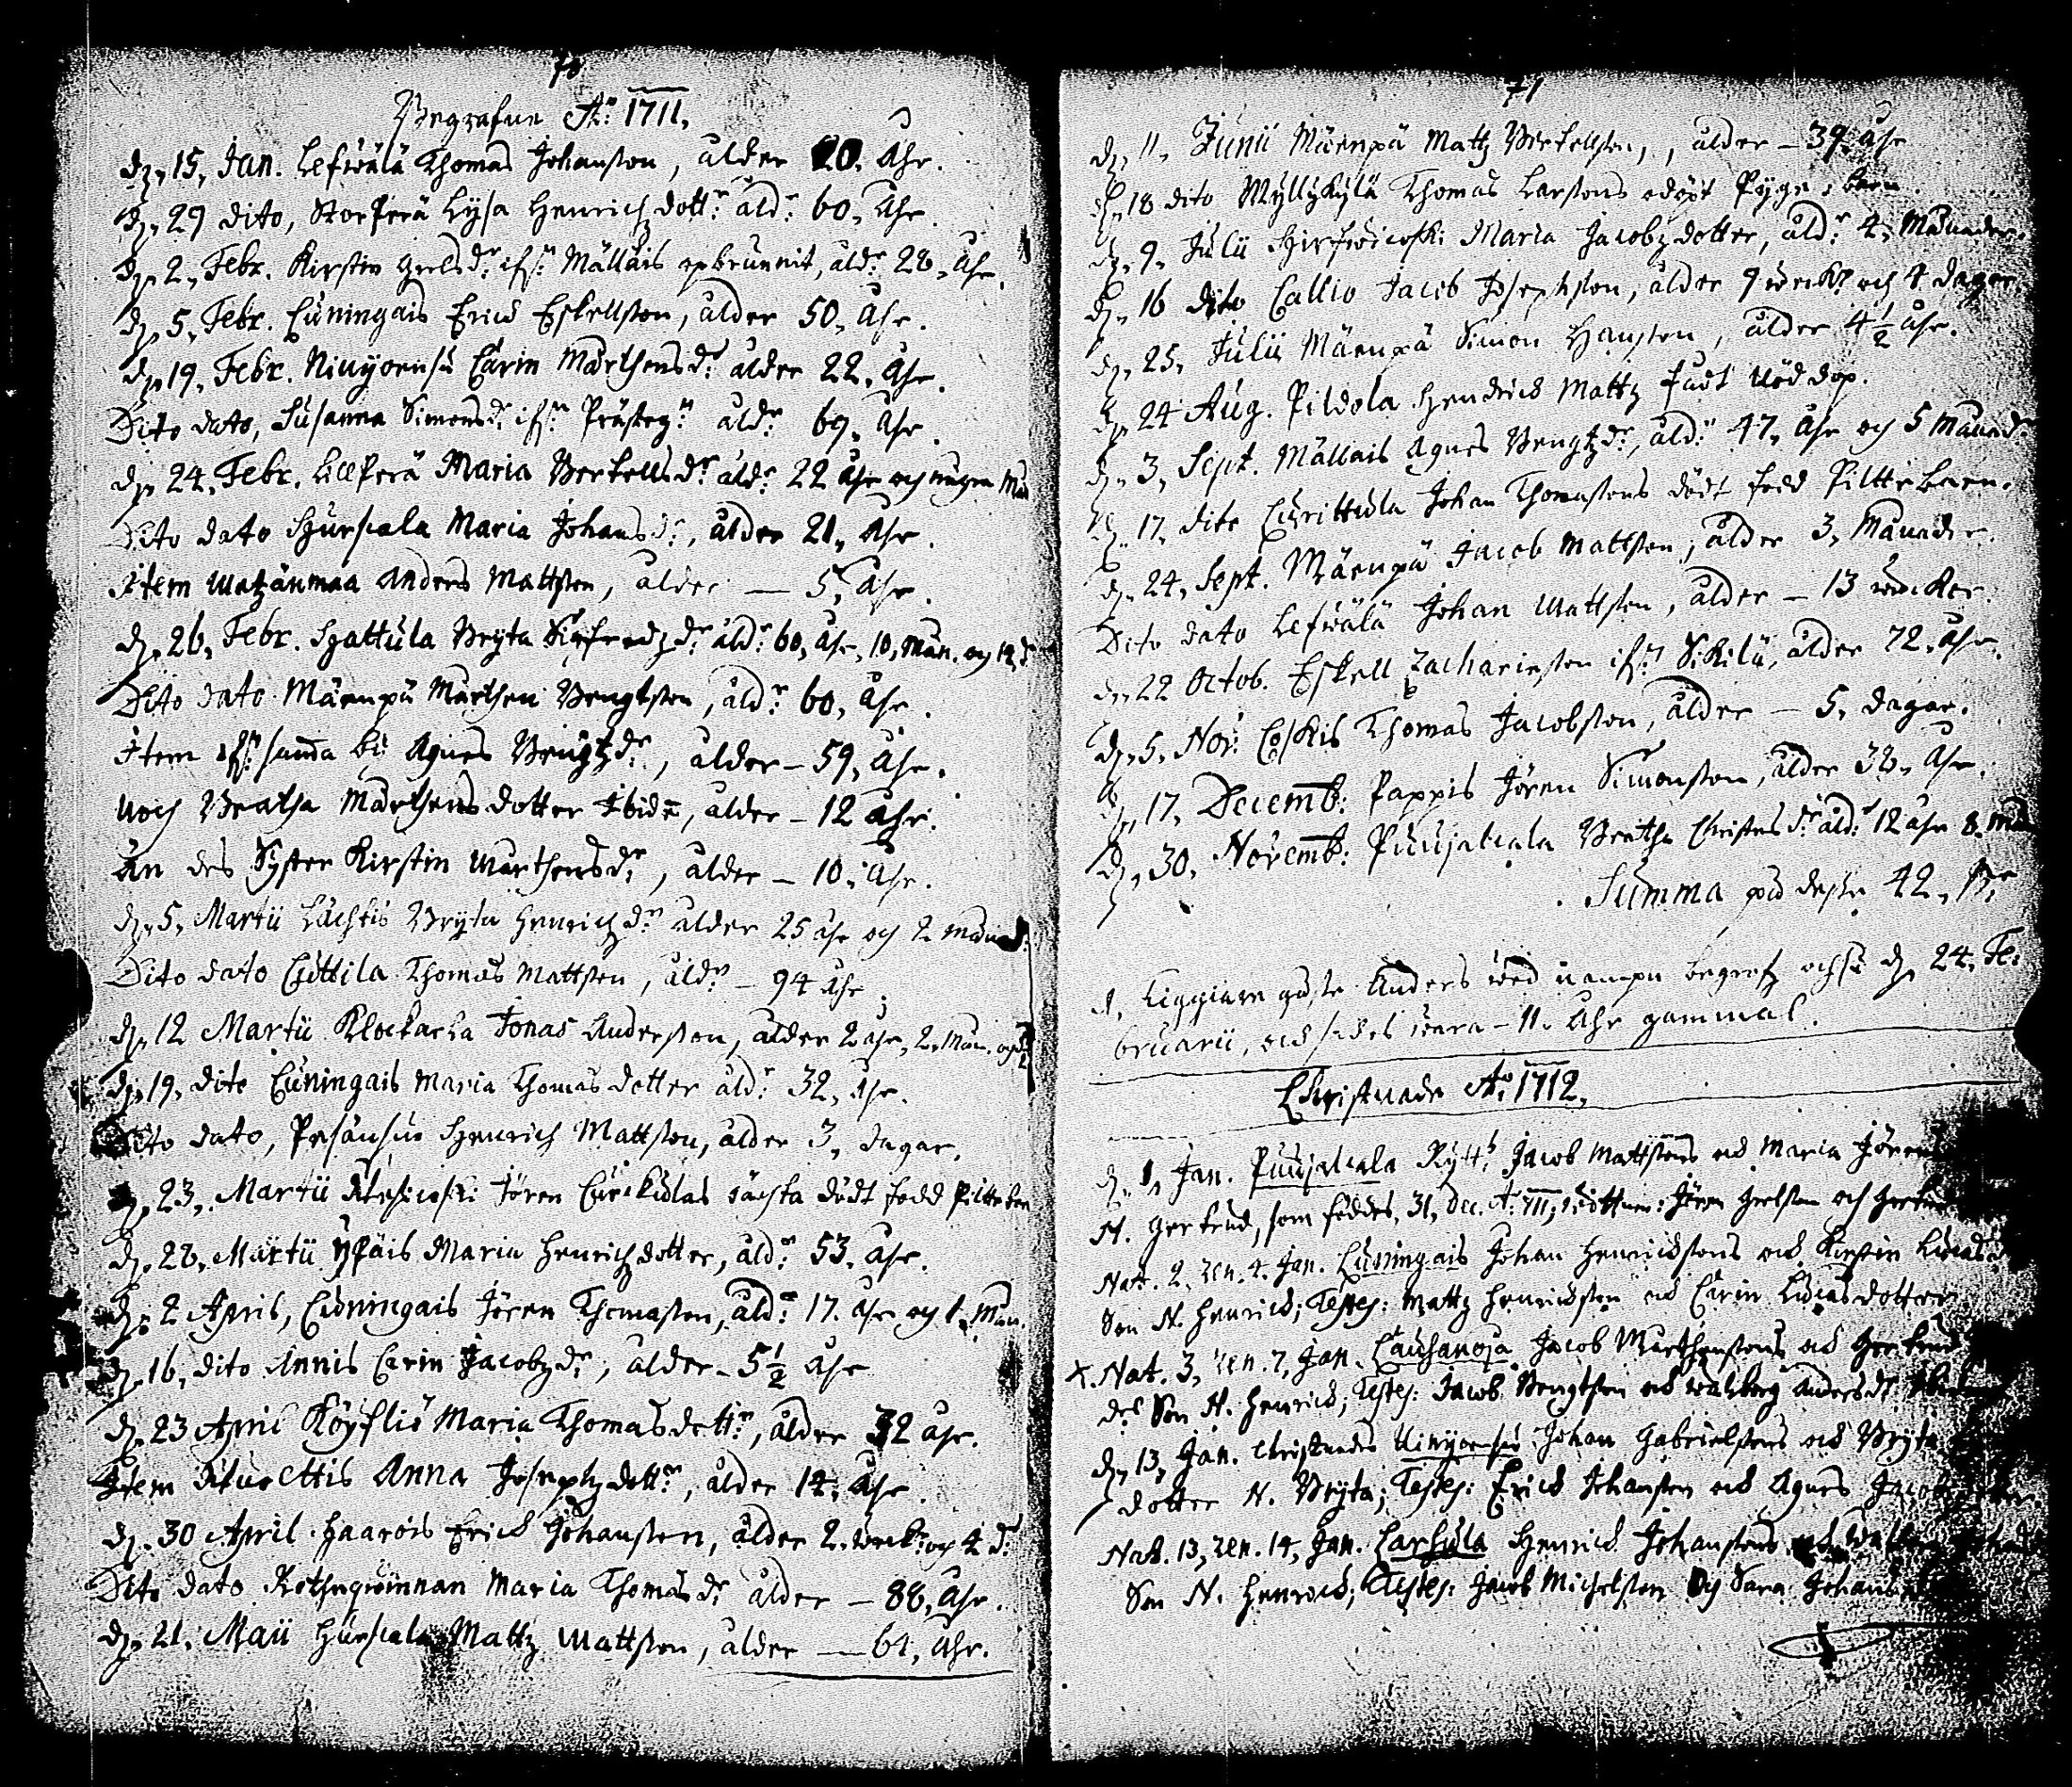 70
Begrafne Ao: 1711.
d. 15, Jan. Lefwälä Thomas Johansson, ålder 20. Åhr.
d. 29 dito, Storperä Lysa Henrichzdottr åldr 60, Åhr.
d. 2, Febr. Kirstin Grelsdr ifrn Mällais opbrunnit, åldr 28, Åhr.
d. 5, Febr. Cuningais Erich Eskellsson, ålder 50, Åhr.
d. 19, Febr. Niuyoensu Carin Mårthensdr ålder 22, Åhr.
Dito dato, Susanna Simonsdr ifrn Prästegn åldr 69, Åhr.
d. 24, Febr. Lillperä Maria Bertellsdr åldr 22 Åhr och någre Mån
Dito dato Hurskala Maria Johansdr, ålder 21, Åhr.
Item Matzänmaa Anders Mattsson, ålder — 5, Åhr.
d. 26, Febr. Hattula Bryta Sigfredzdr åldr 60, Åhr, 10, Mån. och 14, d
Dito dato Mäenpä Mårthen Bengtsson, åldr 60, Åhr.
Item ifrn samma by Agnes Bengtzdr, ålder — 59, Åhr.
Noch Beatha Mårthensdotter Ibide, ålder — 12 Åhr.
än des Syster Kirstin Mårthensdr, ålder — 10, Åhr.
d. 5, Martii Lachtis Bryta Henrichzdr ålder 25 åhr och 2 månad.
Dito dato Cuttila Thomas Mattsson, åldr — 94 Åhr.
d. 12 Martii Klockarla Jonas Andersson, ålder 2 åhr, 2, Mån. och
d. 19, dito Cuningais Maria Thomasdotter åldr 32, Åhr.
Dito dato, Pesänsuu Henrich Mattsson, ålder 3, dagar.
d. 23, Martii Jören Curckulas oächta dödt fodd Pilttebarn
d. 28, Martii Ypäis Maria Henrichzdotter, åldr 53, Åhr.
d. 2 April, Cuningais Jören Thomasson, åldr 17. åhr och 1, Mån.
d. 16, dito Annis Carin Jacobzdr, ålder — 5 1/2 Åhr
d. 23 April Köyliö Maria Thomasdottr, ålder 32 Åhr.
Item Anna Josephzdottr, ålder 14, Åhr.
d. 30 April Haarois Erich Johansson, ålder 2, weck. och 4 d.
Dito dato Rotheqwinnan Maria Thomasdr ålder — 88, Åhr.
d. 21, Maii Hurskala Mattz Mattsson, ålder — 64, Åhr.
71
d. 11, Junii Mäenpä Mattz Bertellsson, ålder — 39 Åhr
d. 18 dito Myllykylä Thomas Larssons odöpt Pyge barn.
d. 9, Julii Hirfwicoski Maria Jacobzdotter, åldr 4, Månader.
d. 16 dito Callio Jacob Josephsson, ålder 9 weckr och 4 dagar.
d. 25, Julii Mäenpä Simon Hansson, ålder 4 1/2 åhr.
d. 24 Aug. Pildola Hendrich Mattz fådt Nöddop.
d. 3, Sept. Mällais Agnes Bengtzdr, åldr 47, Åhr och 5 Månadr
d. 17, dito Curittula Johan Thomassons dödt född Piltte barn.
d. 24, Sept. Mäenpä Jacob Mattsson, ålder 3, Månader.
Dito dato Lefwälä Johan Mattsson, ålder — 13 weckor.
d. 22 Octob. Eskell Zachariesson ifrn Sikilä, ålder 72, Åhr.
d. 5, Nov: Coskis Thomas Jacobsson, ålder — 5, dagar.
d. 17, Decemb: Pappis Jören Simonsson, ålder 38, Åhr.
d. 30, Novemb: Puujalcala Beatha Christersdr åldr 12 åhr 8, mån
Summa på desse 42, st.
d, Liggiare gosse Anders wed nampn begrofz ochså d. 24, Fe:
bruarii, och sades wara — 11, Åhr gammal.
Christnade Ao: 1712,
d. 1, Jan. Puujalcala Rytt. Jacob Mattssons och Maria Jören
N. Gertrud, som föddes, 31, Dec. A: 711, wittnen: Jören Grelsson och Gertrud
Nat. 2, ren. 4, Jan. Cuningais Johan Henrichssons och Kirstin Lucasdr
Son N. Henrich; Testes: Mattz Henrichsson och Carin Lucasdotter
X. Nat. 3, ren. 7, Jan. Cauhanoja Jacob Mårthenssons och Gertrud
des Son N. Henrich; Testes: Jacob Bengtsson och Walborg Andersdr
d. 13, Jan. Christnades Uinyoensu Johan Gabrielssons och Bryta
dotter N. Bryta; Testes: Erich Johansson och Agnes Jacobzdotter
Nat. 13, ren. 14, Jan. Carhula Henrich Johanssons och
Son N. Henrich; Testes: Jacob Michelsson och Sara Johansd